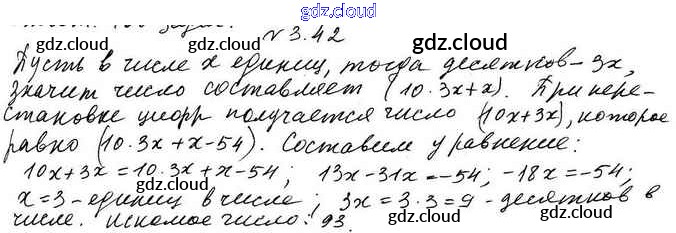 gdz.cz
gdz.cz
№ 3.42
gdz.cz
gdz.cz
Пусть в числе x единиц, тогда десятков - 3x,
значит число составляет (10·3x+x). При пере-
становке цифр получается число (10x+3x), которое
равно (10·3x+x-54). Составим уравнение:
10x+3x=10·3x+x-54; 13x-31x=-54; -18x=-54;
x=3-единиц в числе; 3x=3·3=9-десятков в
числе. Искомое число: 93.
gdz.cz
gdz.cz
gdz.cz
gdz.cz
gdz.cz
gdz.cz
gdz.cz
gdz.cz
gdz.cz